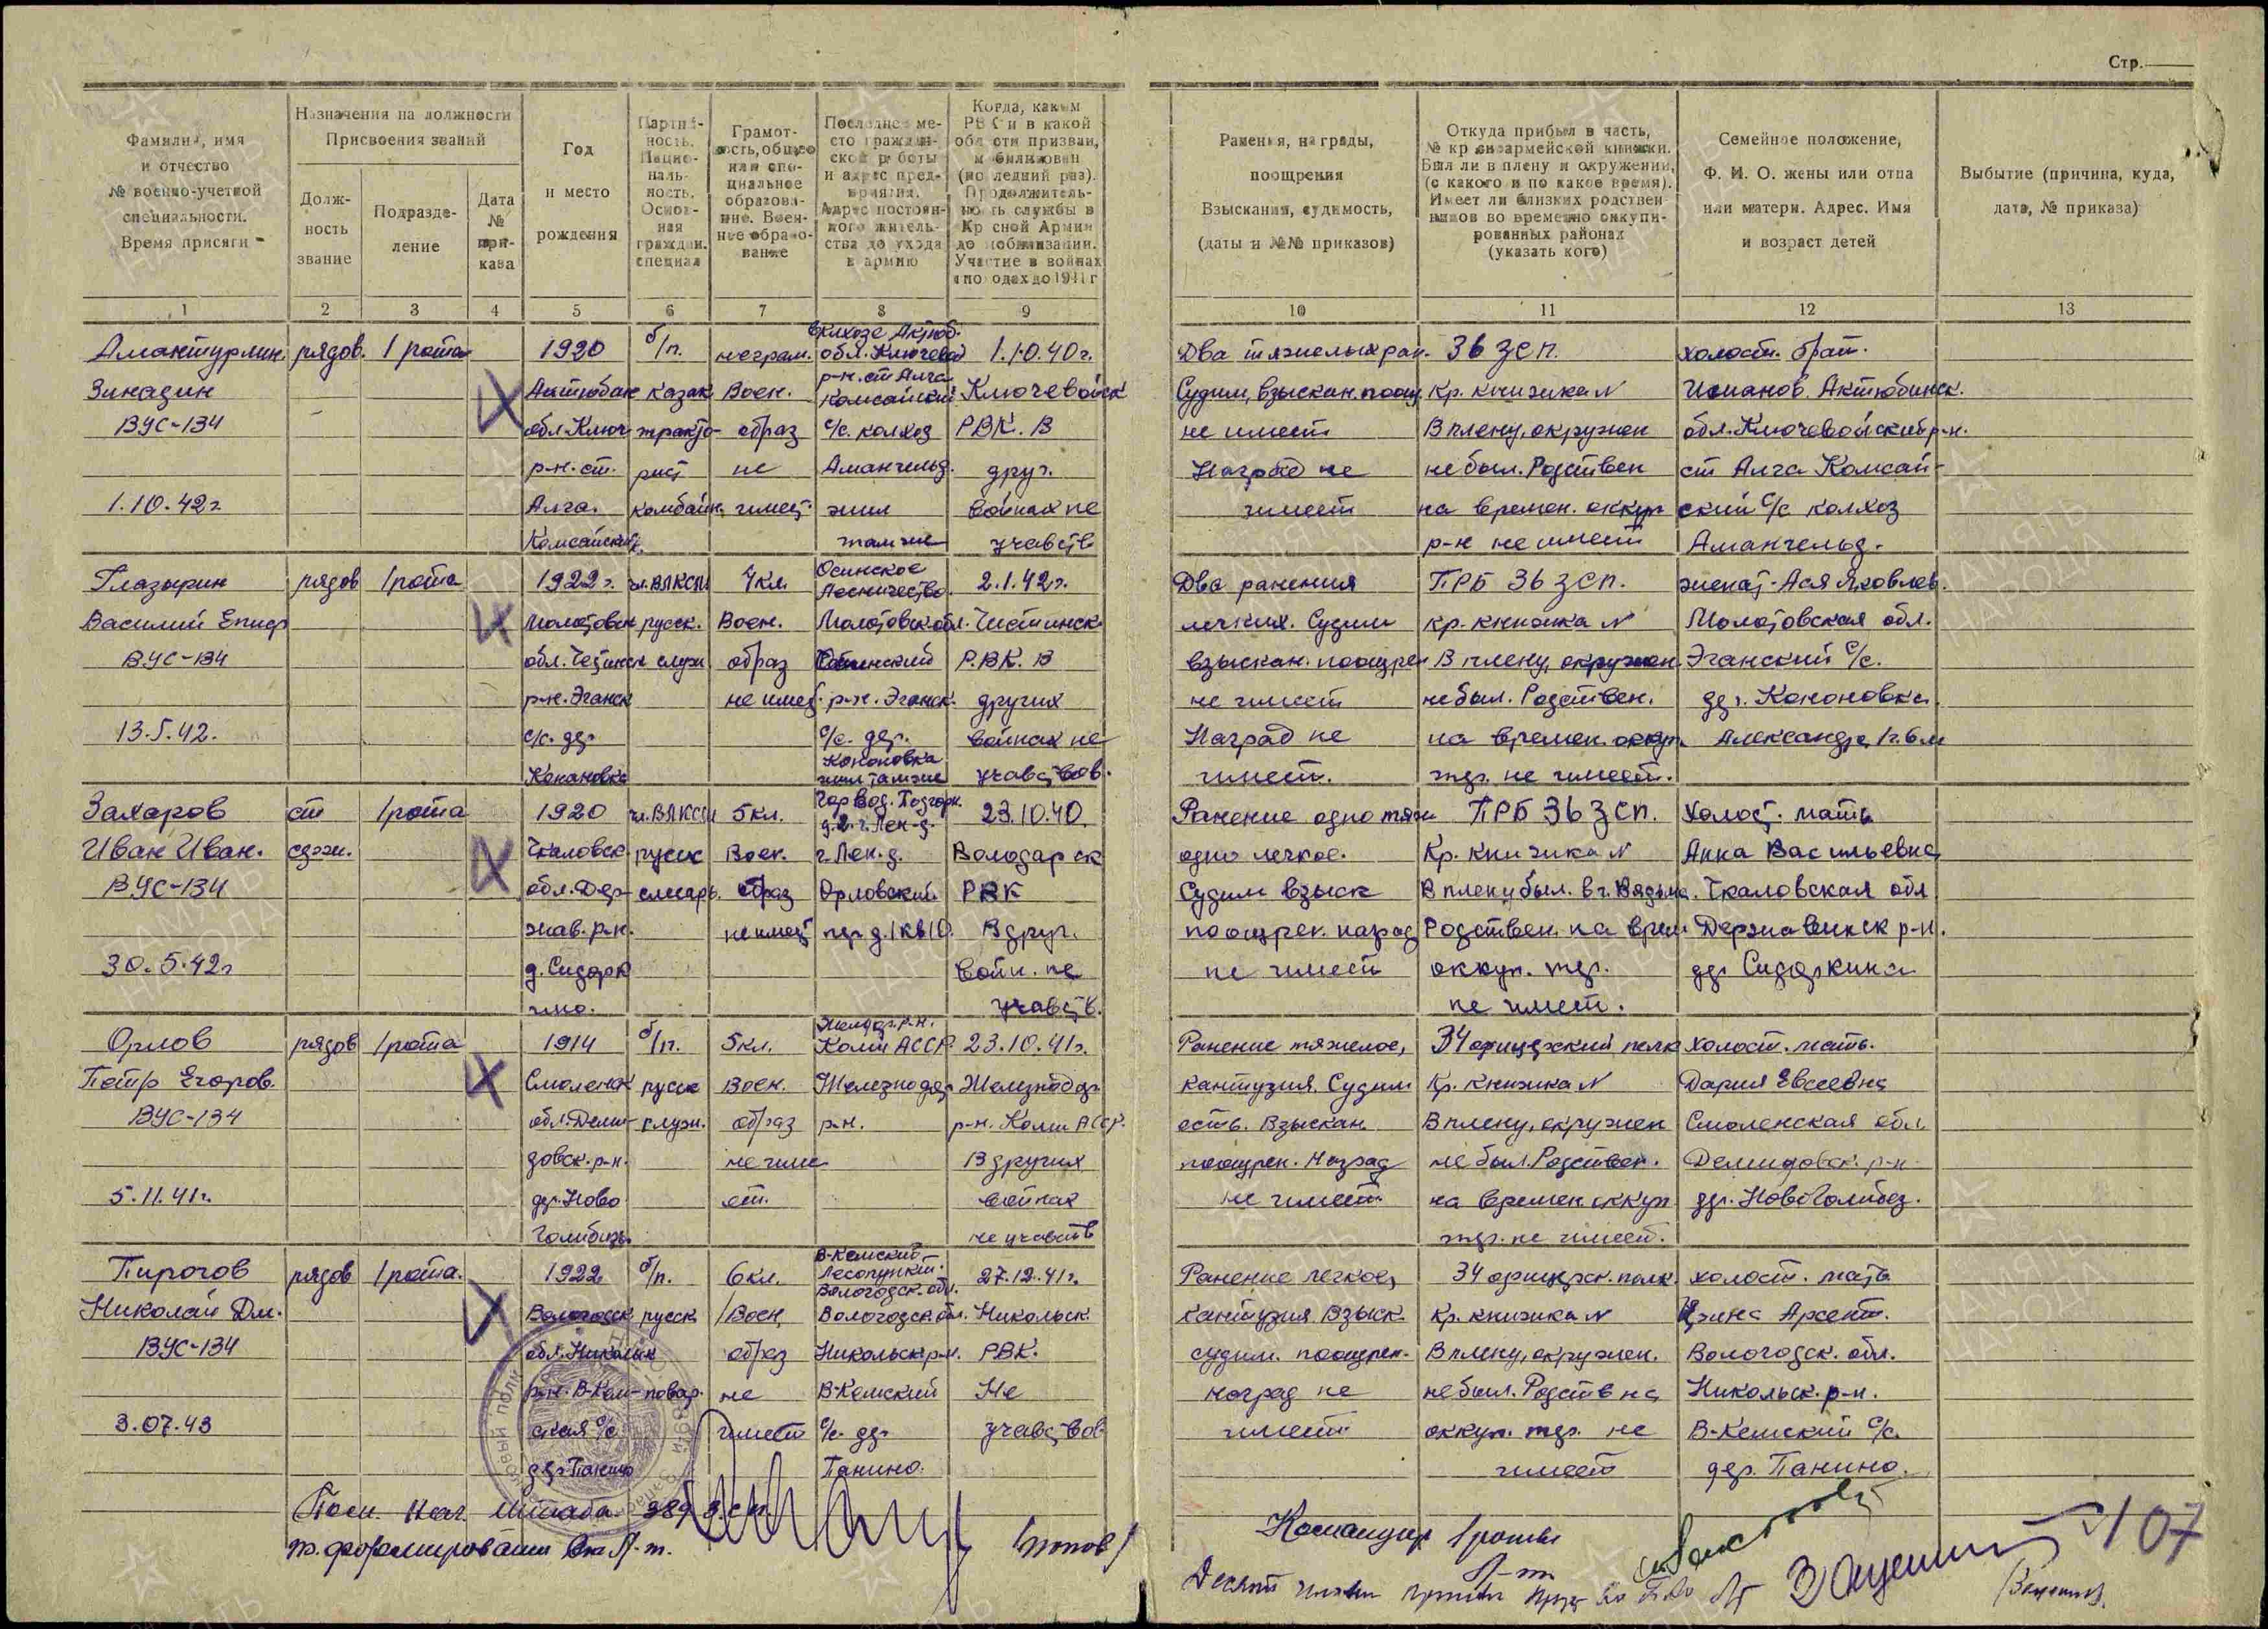 Стр.
Фамилия, имя
и отчество
№ военно-учетной
специальности.
Время присяги
Назначения на должности
Присвоения званий
Долж-
ность
звание
Подразде-
ление
Дата
№
при-
каза
Год
и место
рождения
Партий-
ность.
Нацио-
наль-
ность.
Основ-
ная
граждан.
специал
Грамот-
ность, общее
или спе-
циальное
образова-
ние. Воен-
ное образо-
вание
Последнее ме-
сто граждан-
ской работы
и адрес пред-
приятия.
Адрес постоян-
ного житель-
ства до ухода
в армию
Когда, каким
РВК и в какой
области призван,
мобилизован
(последний раз).
Продолжитель-
ность службы в
Красной Армии
до мобилизации.
Участие в войнах
по годах до 1941 г
Ранения, награды,
поощрения
Взыскания, судимость,
(даты и №№ приказов)
Откуда прибыл в часть,
№ красноармейской книжки.
Был ли в плену и окружении,
(с какого и по какое время).
Имеет ли близких родствен-
ников во временно оккупи-
рованных районах
(указать кого)
Семейное положение,
Ф. И. О. жены или отца
или матери. Адрес. Имя
и возраст детей
Выбытие (причина, куда,
дата, № приказа)
1 2 3 4 5 6 7 8 9 10 11 12 13
Амантурлин
Зинадин
ВУС-134
1.10.42г
рядов. 1 рота
1920
Актюбин
обл. Ключ
р-н. ст.
Алга.
Комсайский
б/п.
казак
тракто-
рист
комбайн.
неграм.
Воен.
образ
не
имеет.
в клхозе Актюб.
обл. Ключевой
р-н. ст Алга
Комсайский
с/с. колхоз
Амангельд.
жил
там же
1.10.40г.
Ключевойск
РВК. В
друг.
войнах не
учавств
Два тяжелых ран.
Судим, взыскан. поощ.
не имеет
Наград не
имеет
36 ЗСП.
Кр. книжка N
В плену, окружен
не был. Родствен
на времен. оккуп
р-н не имеет
холост. брат.
Исманов. Актюбинск.
обл. Ключевойский р-н.
ст Алга Комсай-
ский с/с колхоз
Амангельд.
Глазырин
Василий Епиф
ВУС-134
13.5.42.
рядов 1 рота
1922 г.
Молотовск
р-н. Эганск
с/с. дер
Конановка
чл. ВЛКСМ
русск.
служ
4 кл.
Воен.
образ
не имеет.
Осинское
Лесничество.
Молотовск обл.
р-н. Эганск.
с/с. дер.
Кононовка
жил там же
2.1.42г.
Р.ВК. В
других
войнах не
учавствов.
Два ранения
легких. Судим
взыскан. поощрен
не имеет
Наград не
имеет.
ПРБ 36 ЗСП.
кр. книжка N
В плену, окружен.
не был. Родствен.
на времен. оккуп.
тер. не имеет.
женат - Ася Яковлев.
Молотовская обл.
Эганский с/с.
дер. Кононовка.
Александр, 1г. 6м
Захаров
Иван Иван.
ВУС-134
30.5.42г
ст
серж.
1 рота
1920
Чкаловск
обл. Дер-
жав. р-н.
д. Сидорк
ино.
чл. ВЛКСМ
русск
слесарь.
5 кл.
Воен.
образ
не имеет
г. Лен-д.
Орловский
пер д. 1 кв 10.
23.10.40.
Володарск
РВК
В друг.
войн. не
учавств.
Ранение одно тяж
одно легкое.
Судим взыск
поощрен. наград
не имеет
ПРБ 36 ЗСП.
Кр. книжка N
В плену был. в г. Вязьма.
Родствен. на врем
оккуп. тер.
не имеет.
Холост. мать
Анна Васильевна
Чкаловская обл
Державинск р-н.
дер Сидоркина
Орлов
Петр Егоров.
ВУС-134
5.11.41г.
рядов 1 рота
1914
Смоленск
обл. Деми-
довск. р-н.
дер. Ново
б/п.
русск
служ.
5 кл.
Воен.
образ
не име
ет.
Желездор. р-н.
Коми АССР.
Железнодор
р-н.
23.10.41г.
Железнодор
р-н. Коми АССР.
В других
войнах
не учавств
Ранение тяжелое,
кантузия. Судим
есть. Взыскан.
поощрен. Наград
не имеет.
34 офицерский полк
Кр. книжка N
В плену, окружен
не был. Родствен.
на времен. оккуп
тер. не имеет.
холост. мать.
Дария Евсеевна
Смоленская обл.
Демидовск. р-н
Пирогов
Николай Дм.
ВУС-134
3.07.43
рядов 1 рота.
1922
Вологодск
обл. Никольск
р-н. В-Кем-
ская с/с
дер. Панино
б/п.
русск
повар.
6 кл.
Воен.
образ
не
имеет
В-Кемский
Лесопункт.
Вологодск. обл.
Вологодск обл.
Никольск р-н.
В-Кемский
с/с. дер.
Панино.
27.12.41г.
Никольск.
РВК.
Не
учавствов
Ранение легкое,
кантузия. Взыск.
судим. поощрен.
наград не
имеет.
34 офицерск. полк.
Кр. книжка N
В плену, окружен.
не был. Родств на
оккуп. тер. не
имеет
холост. мать
Арсент.
Вологодск. обл.
Никольск. р-н.
В-Кемский с/с.
дер. Панино.
Пом. нач. Штаба 389 з.с.п.
по формированию
Командир 1 роты
Л-т
107